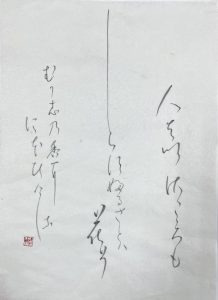 人はいさ心も
しらすふるさとは
花そ
むか志乃香に
にほひける